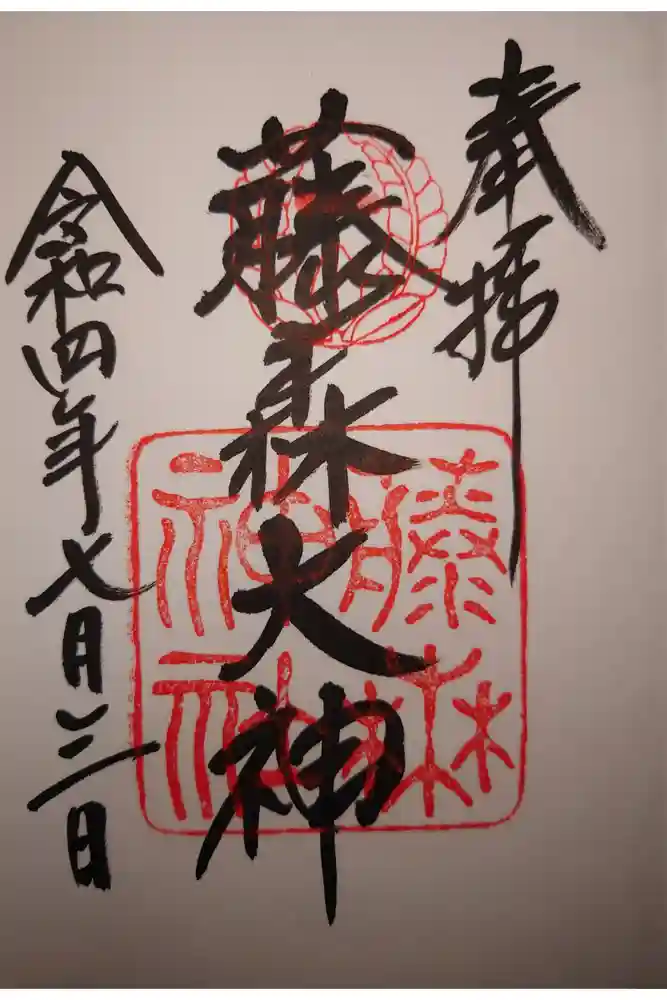 奉拝
藤森大神
令和四年七月三日
藤森
神社